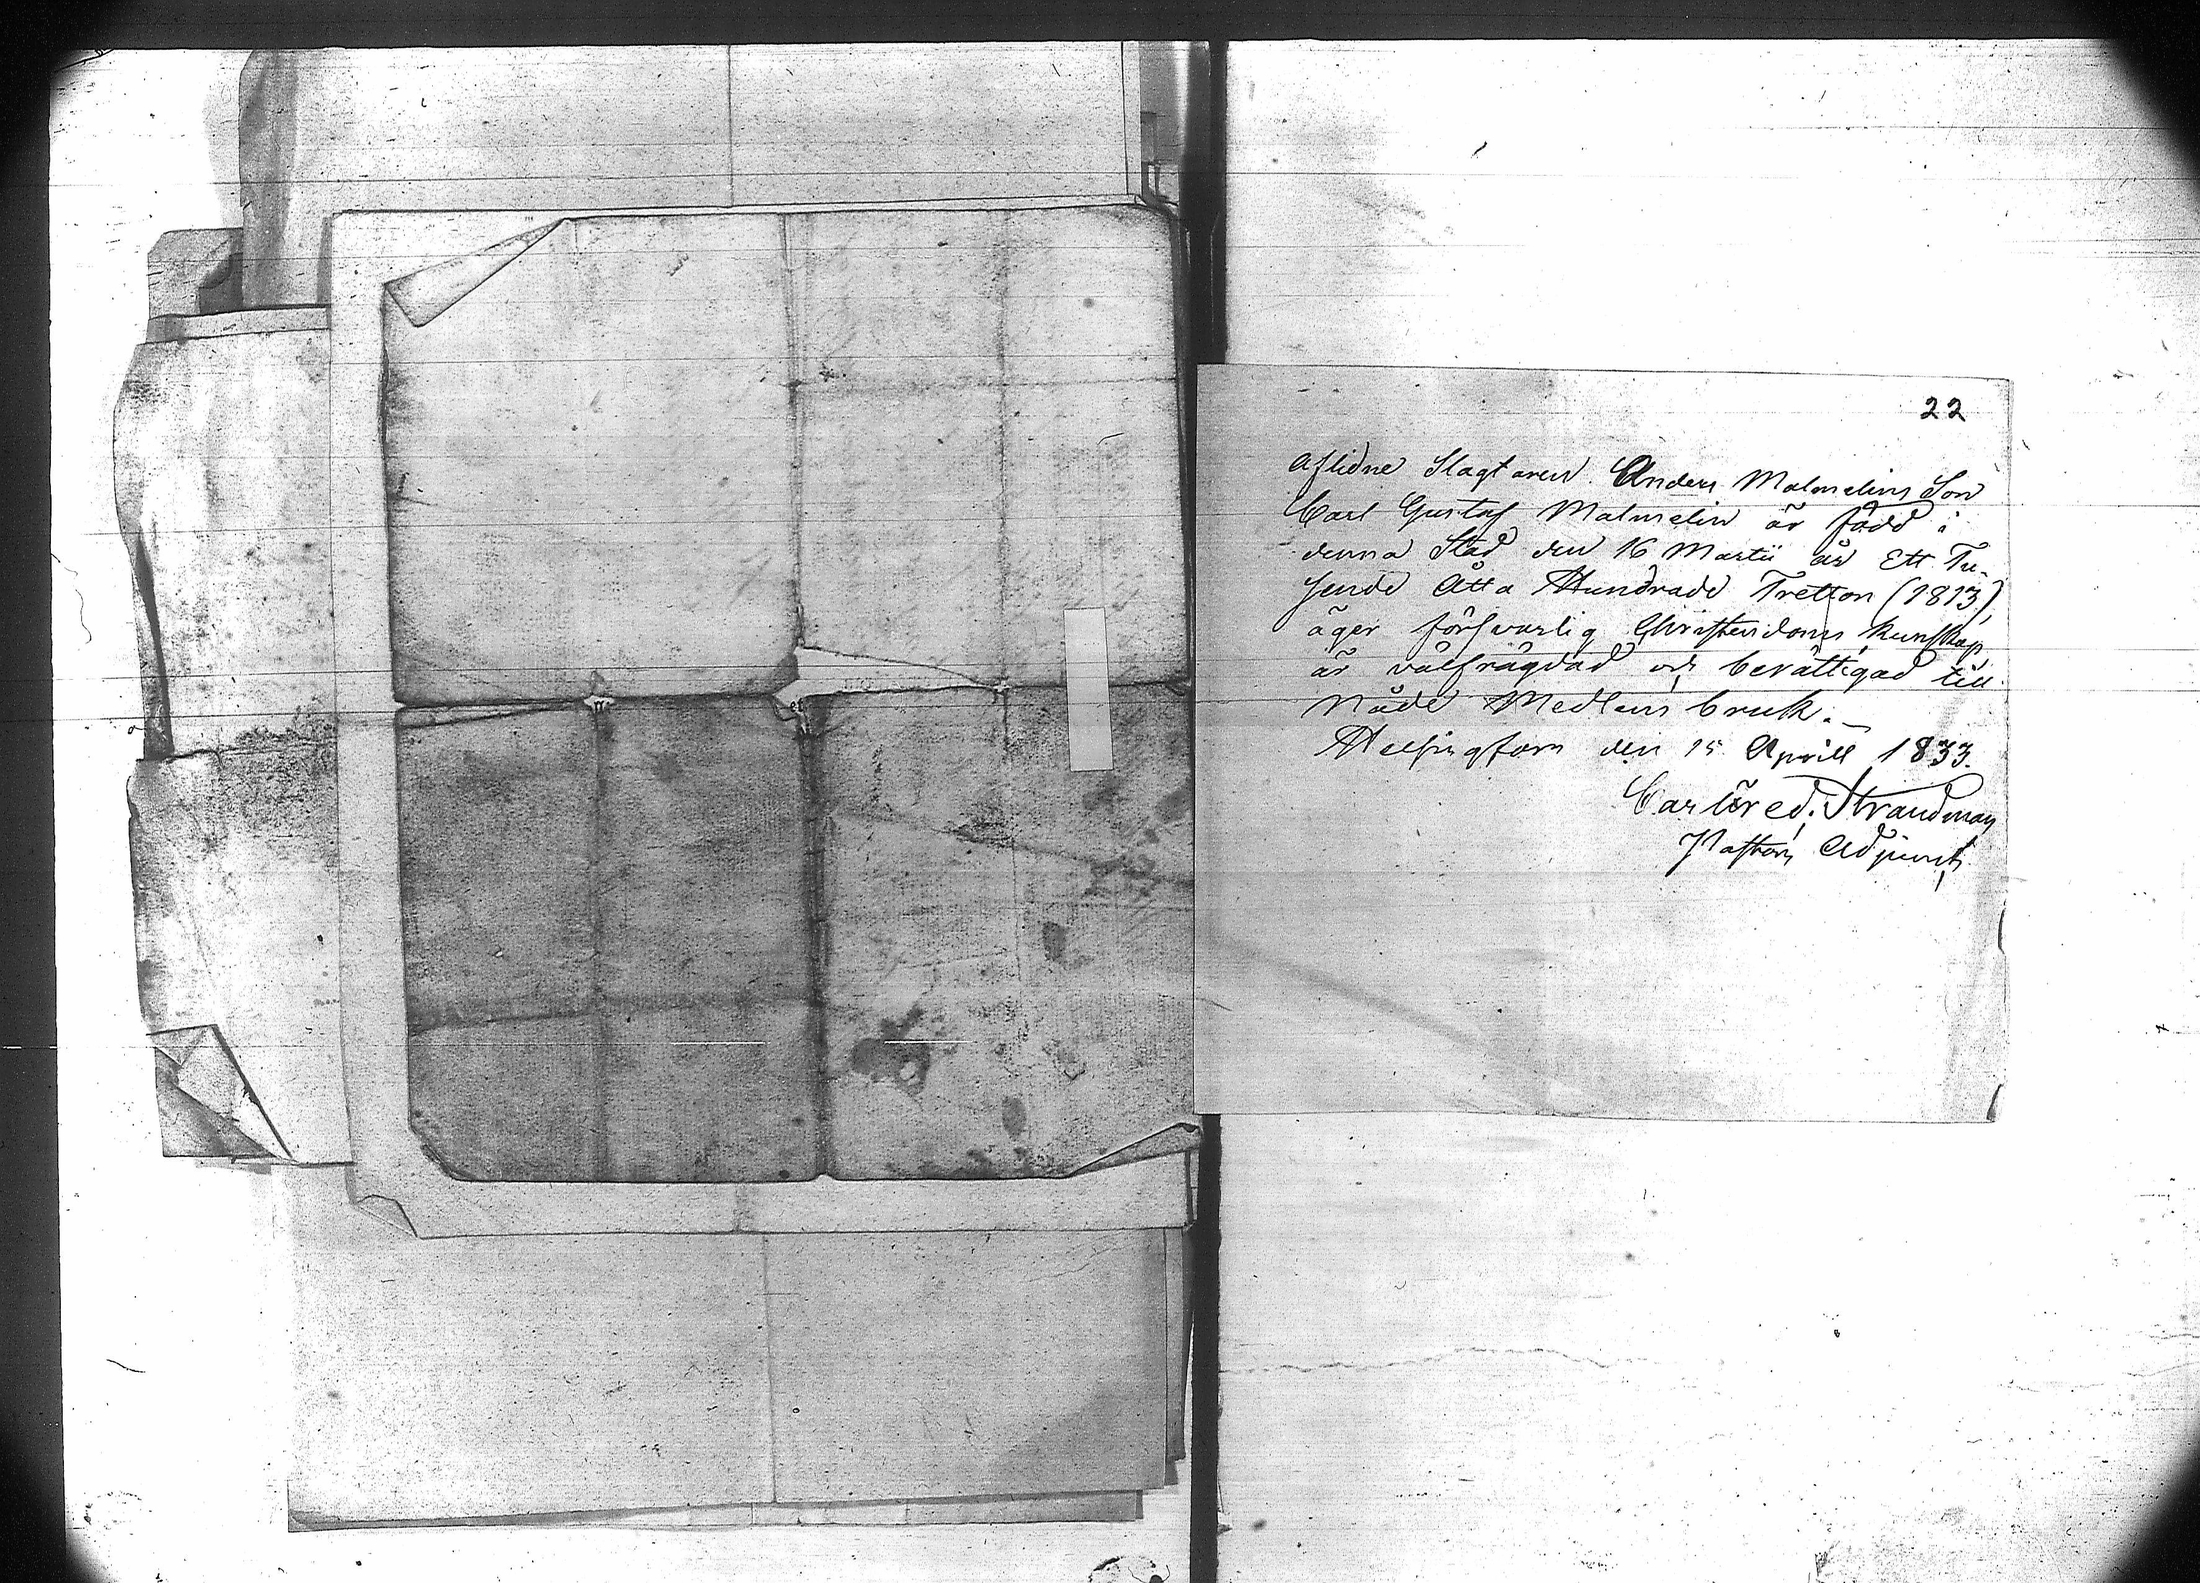 22
Aflidne Slagtaren Anders Malmelins Son
Carl Gustaf Malmelin är född i
denna Stad den 16 Martii år Ett Tu-
sende Åtta Hundrade Tretton (1813)
äger förswarlig Christendoms kunskap
är välfrägdad och berättigad till
Nåde Medlens bruk.
Helsingfors den 15 Aprill 1833.
Strandman
Pastors Adjunct